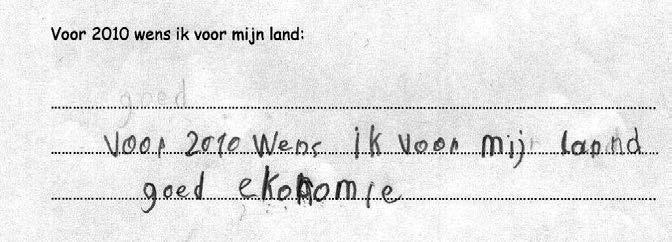 Voor 2010 wens ik voor mijn land:
goed
Voor 2010 Wens ik Voor mij lannd
goed ekonomie